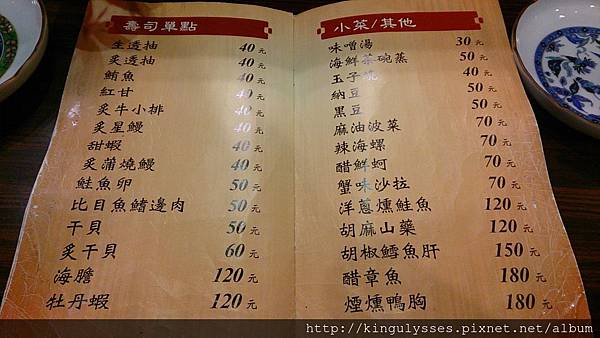 壽司單點
生透抽 40元
炙透抽 40元
鮪魚 40元
紅甘 40元
炙牛小排 40元
炙星鰻 40元
甜蝦 40元
炙蒲燒鰻 40元
鮭魚卵 50元
比目魚鰭邊肉 50元
干貝 50元
炙干貝 60元
海膽 120元
牡丹蝦 120元
小菜/其他
味噌湯 30元
海鮮茶碗蒸 50元
玉子燒 40元
納豆 50元
黑豆 50元
麻油波菜 70元
辣海螺 70元
醋鮮蚵 70元
蟹味沙拉 70元
洋蔥燻鮭魚 120元
胡麻山藥 120元
胡椒鱈魚肝 150元
醋章魚 180元
煙燻鴨胸 180元
http://kingulysses.pixnet.net/album